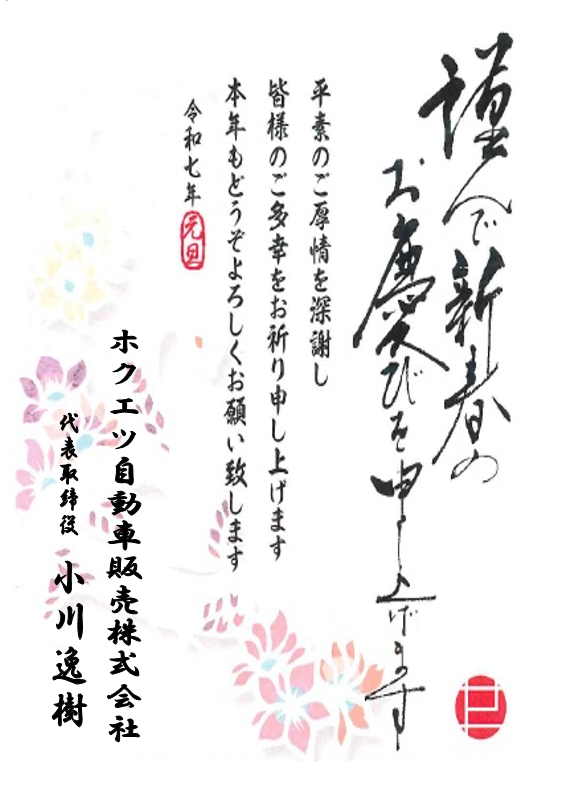 謹んで新春の
お慶びを申し上げます
平素のご厚情を深謝し
皆様のご多幸をお祈り申し上げます
本年もどうぞよろしくお願い致します
令和七年 元旦
ホクエツ自動車販売株式会社
代表取締役 小川逸樹
巳